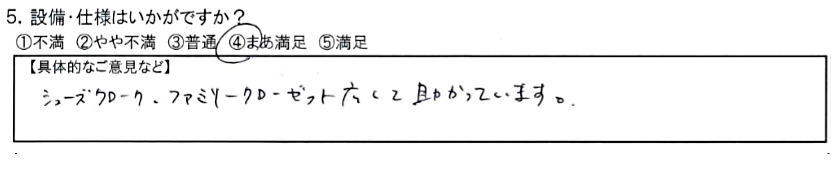 5. 設備・仕様はいかがですか？
①不満 ②やや不満 ③普通 ④まあ満足 ⑤満足
【具体的なご意見など】
シューズクローク、ファミリークローゼット広くて助かっています。